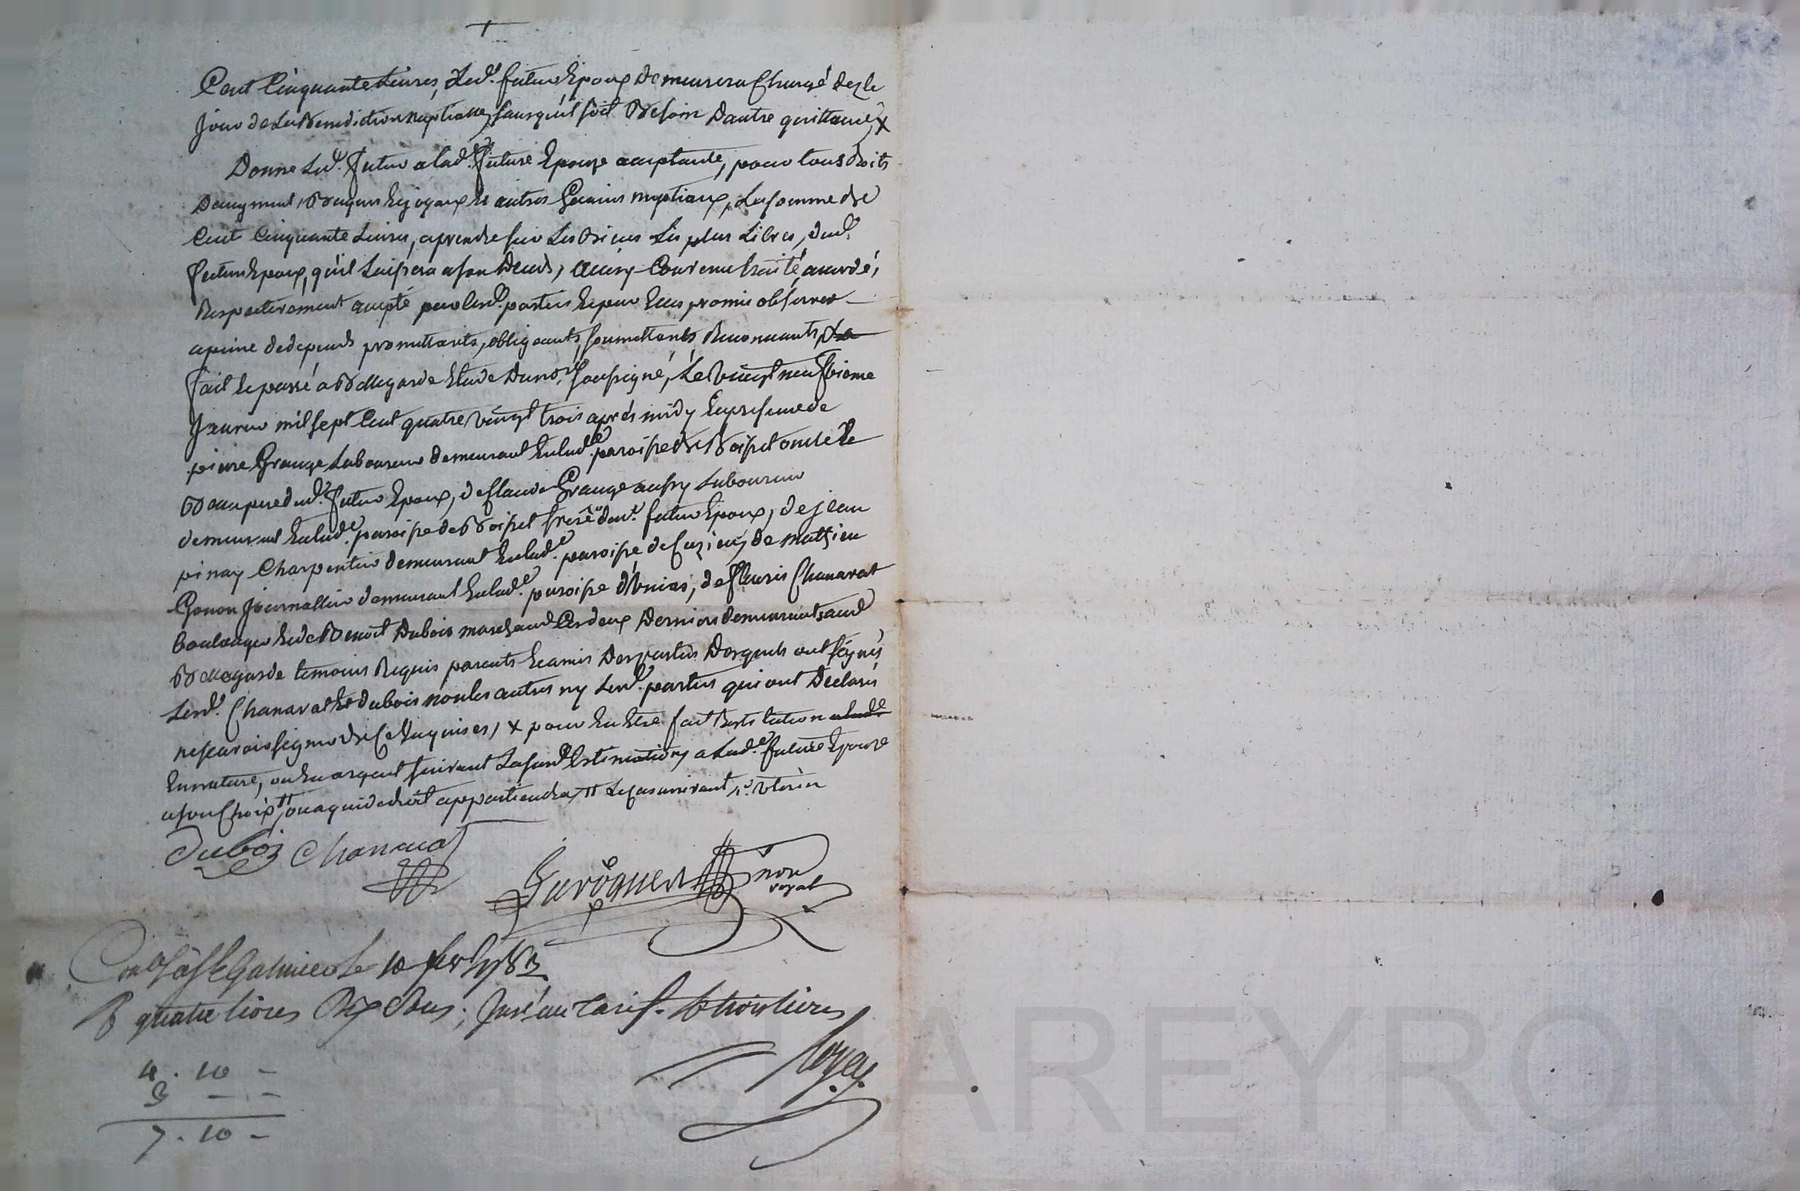 Cent Cinquante Livres, Led.t futur Epoux Demeurera Chargé dez le
Jour de La Benediction nuptialle, sans qu'il soit Besoin Dautre quittance, x
Donne Led.t futur a lad.e future Epouze acceptante, pour tous droits
Daugment, Bagues Et joyaux Et autres Gains nuptiaux, La somme de
Cent Cinquante Livres, aprendre sur Les Biens Les plus Libres, dud.t
futur Epoux, qu'il Laissera a son Deces, Ainsy Convenu traité acordé,
Respectivement acepté par lesd. parties Et par Elles promis observer
apeine de depends promettants, obligeants, soumettants Renonceants,
fait Et passé a Bellegarde Etude Du no.re soussigné, Le vingt neufvieme
Janvier mil sept Cent quatre vingt trois après midy En presence de
pierre Grange Laboureur demeurant En lad.e paroisse de Boisset oncle
Beaupere dud.t futur Epoux, de Claude Grange aussy Laboureur
demeurant En lad.e paroisse de Boisset frere dud.t futur Epoux, de jean
pinay Charpentier demeurant En lad.e paroisse de Cuzieu, de mathieu
Gonon Journallier demeurant En lad.e paroisse d'Unias, de fleuris Chanavat
boulanger Et de Benoit Dubois marchand Ces deux Derniers demeurants aud.
Bellegarde temoins Requis parents Et amis Des parties Desquels ont signé
Lesd. Chanavat Et dubois non les autres ny Lesd. parties qui ont Declaré
ne scavoir signer de Ce Enquises, x pour En Etre fait Restitution alad.e
En nature, ou En argent suivant Lasusd. Estimation, a Lad.e future Epouze
a son Choix, ou a qui de droit appartiendra, Le cas arrivant,
Duboi Chanavat
no.re
royal
Con.lé à S.t Galmier le 10 fev. 1783
R quatre livres Dix Sous; Jns.é au Tarif. trois livres
4 . 10 -
3 - -
7 . 10 -
AREYRON